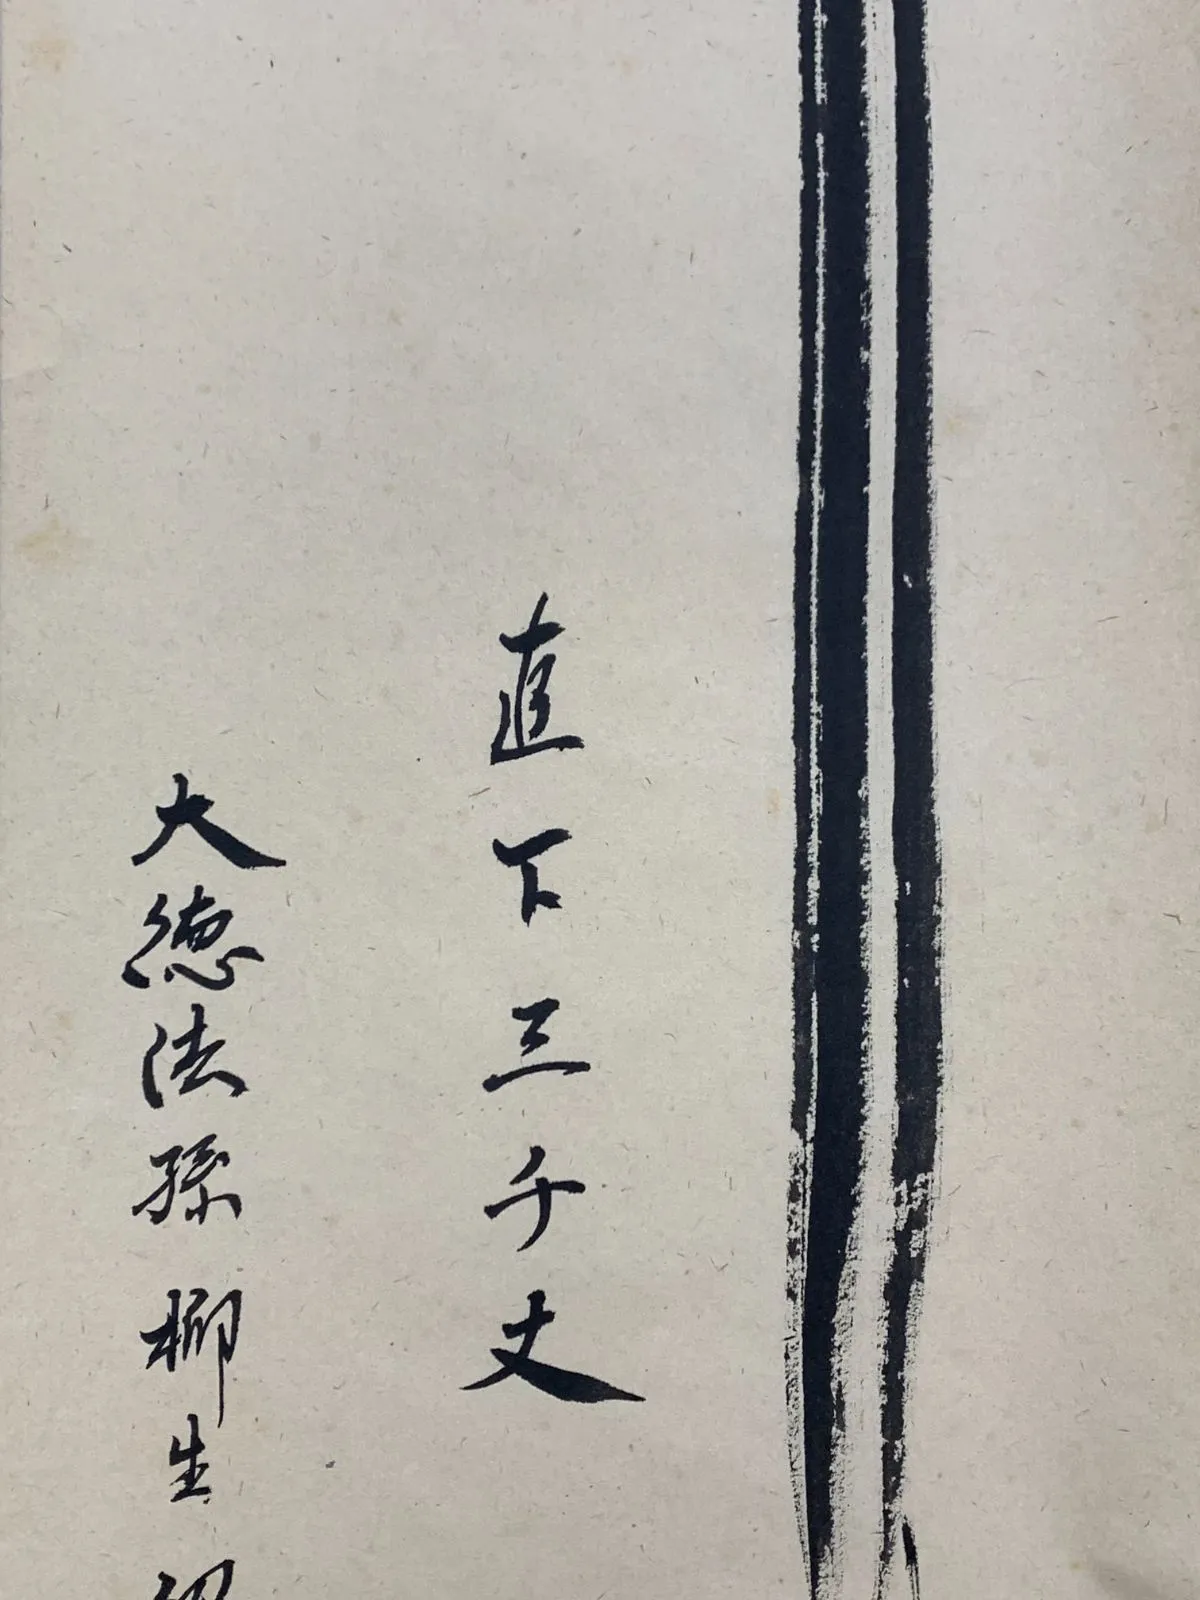 直下三千丈
大徳法孫 柳生